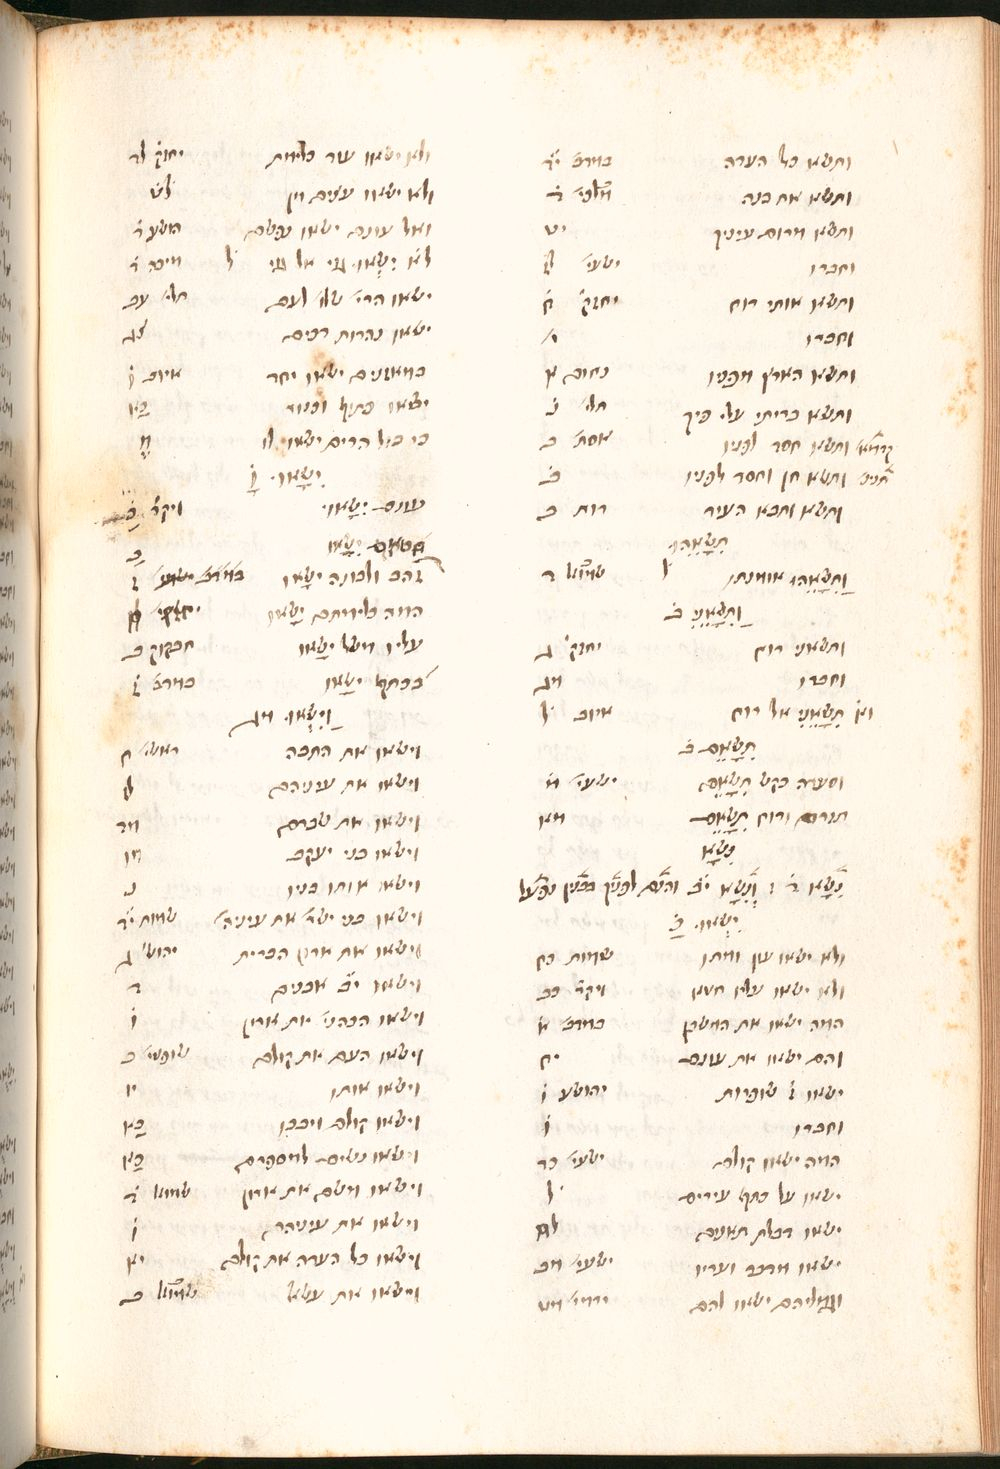 ותשא כל העדה במדב׳ יד
ותשא את בנה מלכי׳ ד
ותשא מרום עיניך יט
וחברו ישעי׳
ותשא אותי רוח יחזק׳ ח
וחברו יא
ותשא הארץ מפניו נחום א
ותשא בריתי עלי פיך תלי׳ נ
ותשא חסד לפניו אסת׳ ב
ותשא חן וחסד לפניו ב
ותשא ותבא העיר רות ב
תשאהו
ותשאהו אומנתו ל שמוא׳ ד
ותשאני ב
ותשאני רוח יחזק׳ ג
וחברו מג
תשאני אל רוח איוב ל
תשאם ב
וסערה כקש תשאם ישעי׳ מ
תזרם ורוח תשאם מא
נשא
ישאו
ולא ישאו עון ומתו שמות כח
ולא ישאו עליו חטא ויקר׳ כב
המה ישאו את המשכן במדב׳ א
והם ישאו את עונם יח
ישאו ז שופרות יהושע ו
וחברו ו
המה ישאו קולם ישעי׳ כד
ישאו על כתף עירים ל
ישאו
ישאו מדבר ועריו ישעי׳ מב
וגמליהם ישאו להם ירמי׳ מט
ולא ישאו עוד כלימת יחזק׳ לד
ולא ישאו
ואל עונם ישאו נפשם הושע ד
לא ישאו גוי אל גוי ל מיכה ד
ישאו הרי׳ שלו׳ לעם תלי׳ עב
ישאו נהרות דכים צג
במאזנים ישאו יחד איוב ו
ישאו כתוף וכנור כא
כי בול הרים ישאו לו מ
ישאו
עונם ישאו ויקר׳ כ
חטאם ישאו כ
זהב ולבונה ישאו
המה כלימתם ישאו יחזקי׳
עליו משל ישאו חבקוק ב
בכתף ישאו במדב׳ ז
וישאו מג
וישאו את התבה ראשי׳ ז
וישאו את עיניהם
וישאו את שברם מב
וישאו בני יעקב מו
וישאו אותו בניו נ
וישאו בני ישר׳ את עיניה׳ שמות יד
וישאו את ארון הברית יהוש׳ ג
וישאו יב אבנים ד
וישאו הכהני׳ את ארון ו
וישאו העם את קולם שופטי׳ ב
וישאו אותו יו
וישאו קולם ויבכו כא
וישאו נשים למספרם כא
וישאו משם את ארון שמוא׳ ד
וישאו את עיניהם ו
וישאו כל העדה את קולם יא
וישאו את עשא׳ שמוא׳ ב